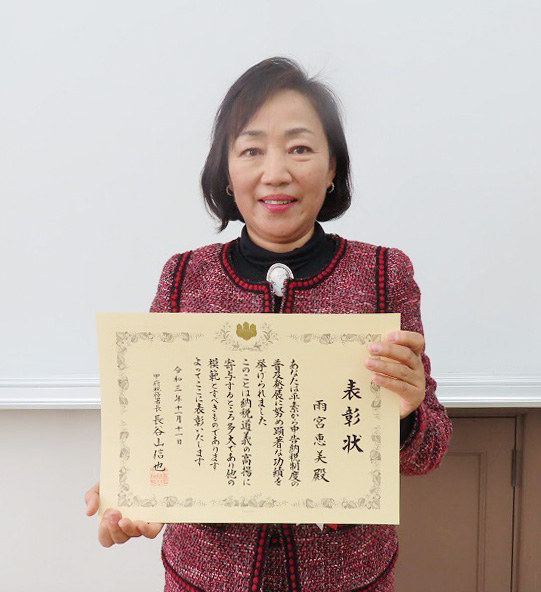 表彰状
雨宮恵美殿
あなたは平素から申告納税制度の
普及発展に努め顕著な功績を
挙げられました
このことは納税道義の高揚に
寄与するところ多大であり他の
模範とすべきものであります
よってここに表彰いたします
令和三年十一月十一日
甲府税務署長 長谷山信也